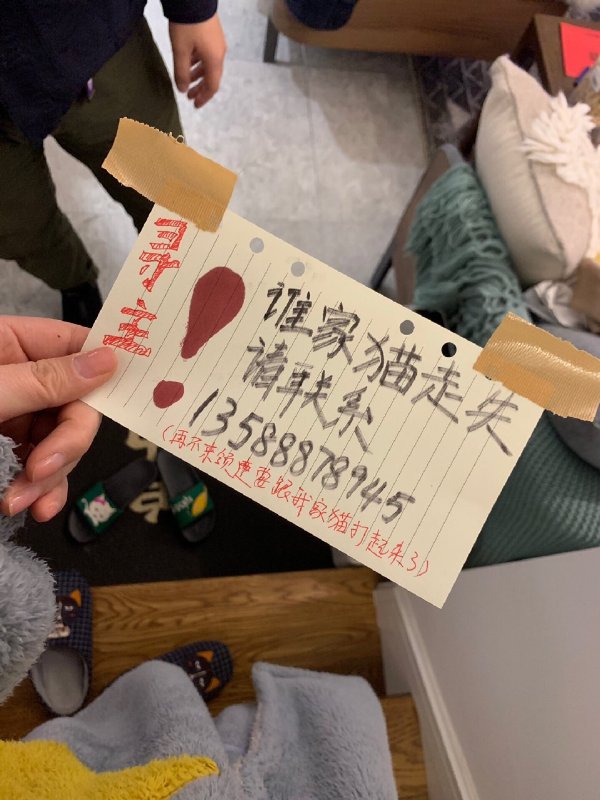 寻主
谁家猫走失
请联系
13588878945
(再不来领走要跟我家猫打起来了)